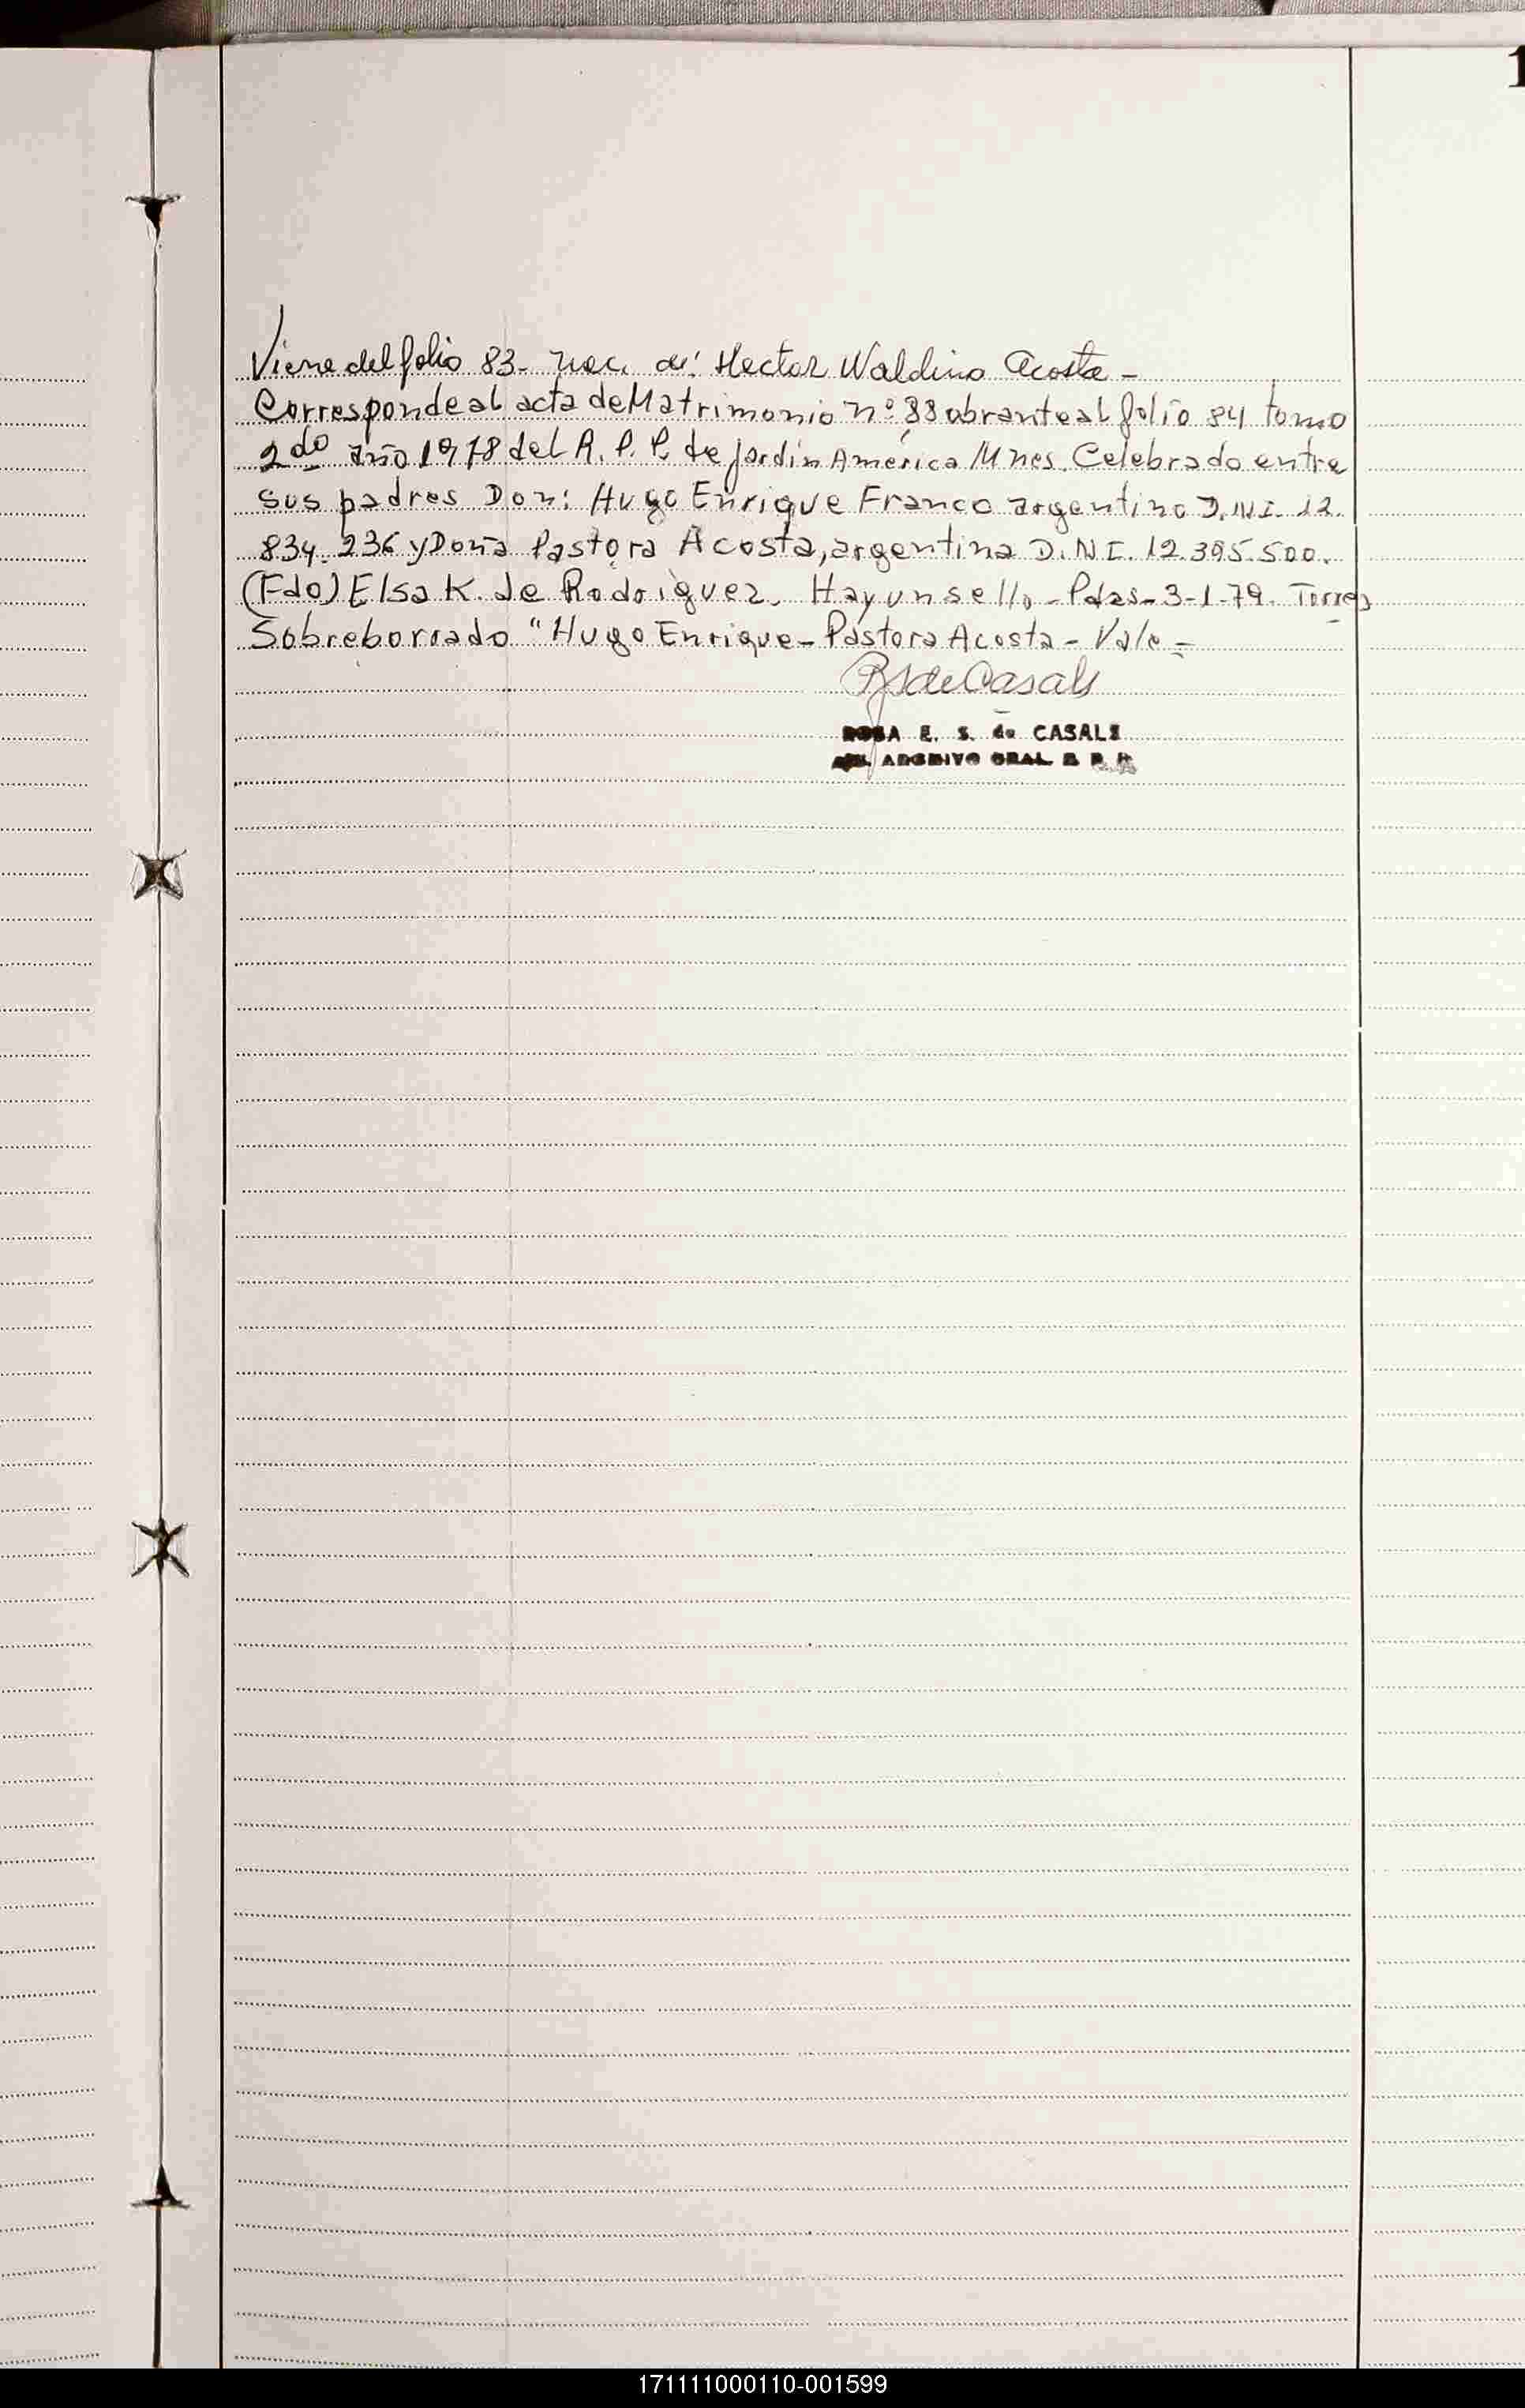 1
Viene del folio 83- nac. de: Hector Waldino Acosta-
Corresponde al acta de Matrimonio nº 88 obrante al folio 84 tomo
2do año 1978 del R. P. P. de Jardín América Mnes. Celebrado entre
sus padres Don: Hugo Enrique Franco argentino D.N.I. 12.
834.236 y Doña Pastora Acosta, argentina D.N.I. 12.395.500.
(Fdo) Elsa K. de Rodriguez. Hay un sello-Pdas-3-1-79. Torres
Sobreborrado "Hugo Enrique-Pastora Acosta-Vale=
RSdeCasals
ROSA E. S. de CASALS
ARCHIVO GRAL R P P
171111000110-001599